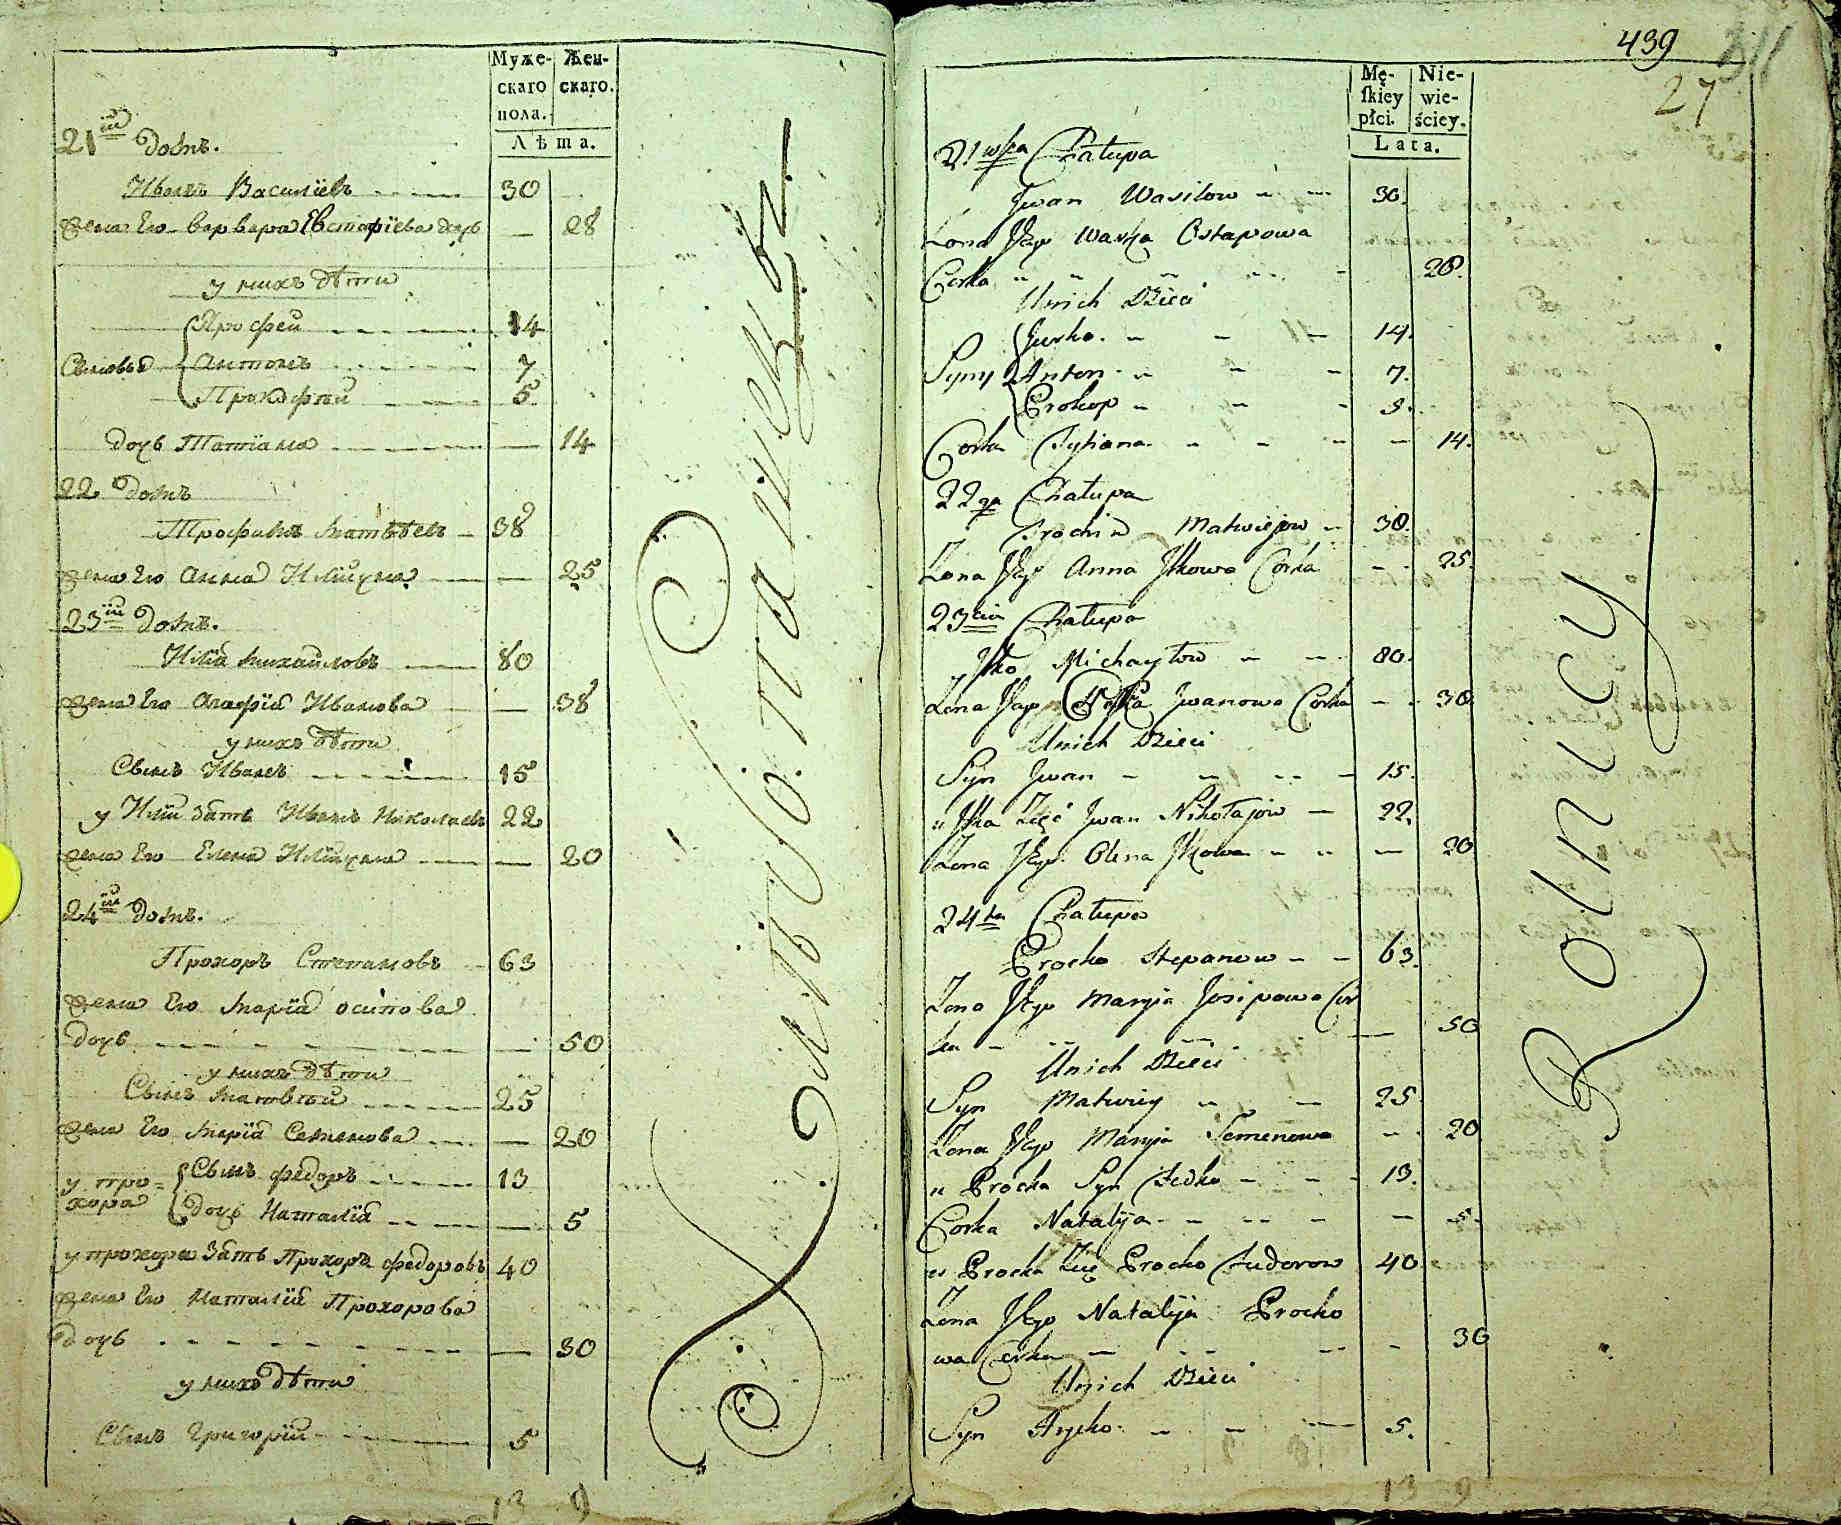 Муже-
скаго
пола.
Жен-
скаго.
Лѣта.
21й домъ.
Иванъ Василïевъ 30
жена Его варвара Евстафïева дочь — 28
у нихъ дѣти
Ярофей 14
Сыновья Антонъ 7
Прокофей 5
дочь Татïана — 14
22 домъ
Трофимъ Матвѣевъ 38
жена Его Анна Илïина — 25
23й домъ.
Илïа Михайловъ 80
жена Его Агафïа Иванова — 38
у нихъ дѣти
Сынъ Иванъ 15
у Илïи зать Иванъ Николаевъ 22
жена Его Елена Илïина — 20
24й домъ.
Прохоръ Степановъ 63
жена Его Марïа осипова
дочь — 50
у нихъ дѣти
Сынъ Матвей 25
жена Его Марïа Семенова — 20
у про=
хора
Сынъ федоръ 13
дочь Наталïа — 5
у прохора зать Прохоръ федоровъ 40
жена Его Наталïа Прохорова
дочь — 30
у нихъ дѣти
Сынъ Григорïй 5
13 9
439
27
Mę-
ſkiey
płci.
Nie-
wie-
ściey.
Lata.
21wsza Chałupa
Jwan Wasilow 30.
Zona Jego Warka Ostapowa
Corka 28.
Unich Dzieci
Jurko 14.
Syny Anton 7.
Prokop 5.
Corka Tytiana — 14.
22ga Chałupa
Trochim Matwiejow 38.
Zona Jego Anna Jlkowa Córka 25.
23cia Chałupa
Jlko Michayłow 80.
Zona Jego Jwanowa Corka 38
Unich Dzieci
Syn Jwan 15.
u Jlka Zięć Jwan Nikołajow 22.
Zona Jego Olena Jlkowa — 20
24ta Chałupa
Procko Stepanow 63.
Zona Jego Maryia Josipowa Cor
ka — 50
Unich Dzieci
Syn Matwiey 25
Zona Jego Maryia Semenowa 20
u Procka Syn Fedko 13.
Corka Natalija — 5.
u Procka Zięć Procko Fudorow 40
Zona Jego Natalija Procko
wa Corka 30
Unich Dzieci
Syn Hryćko 5.
13 9
Rolnicy